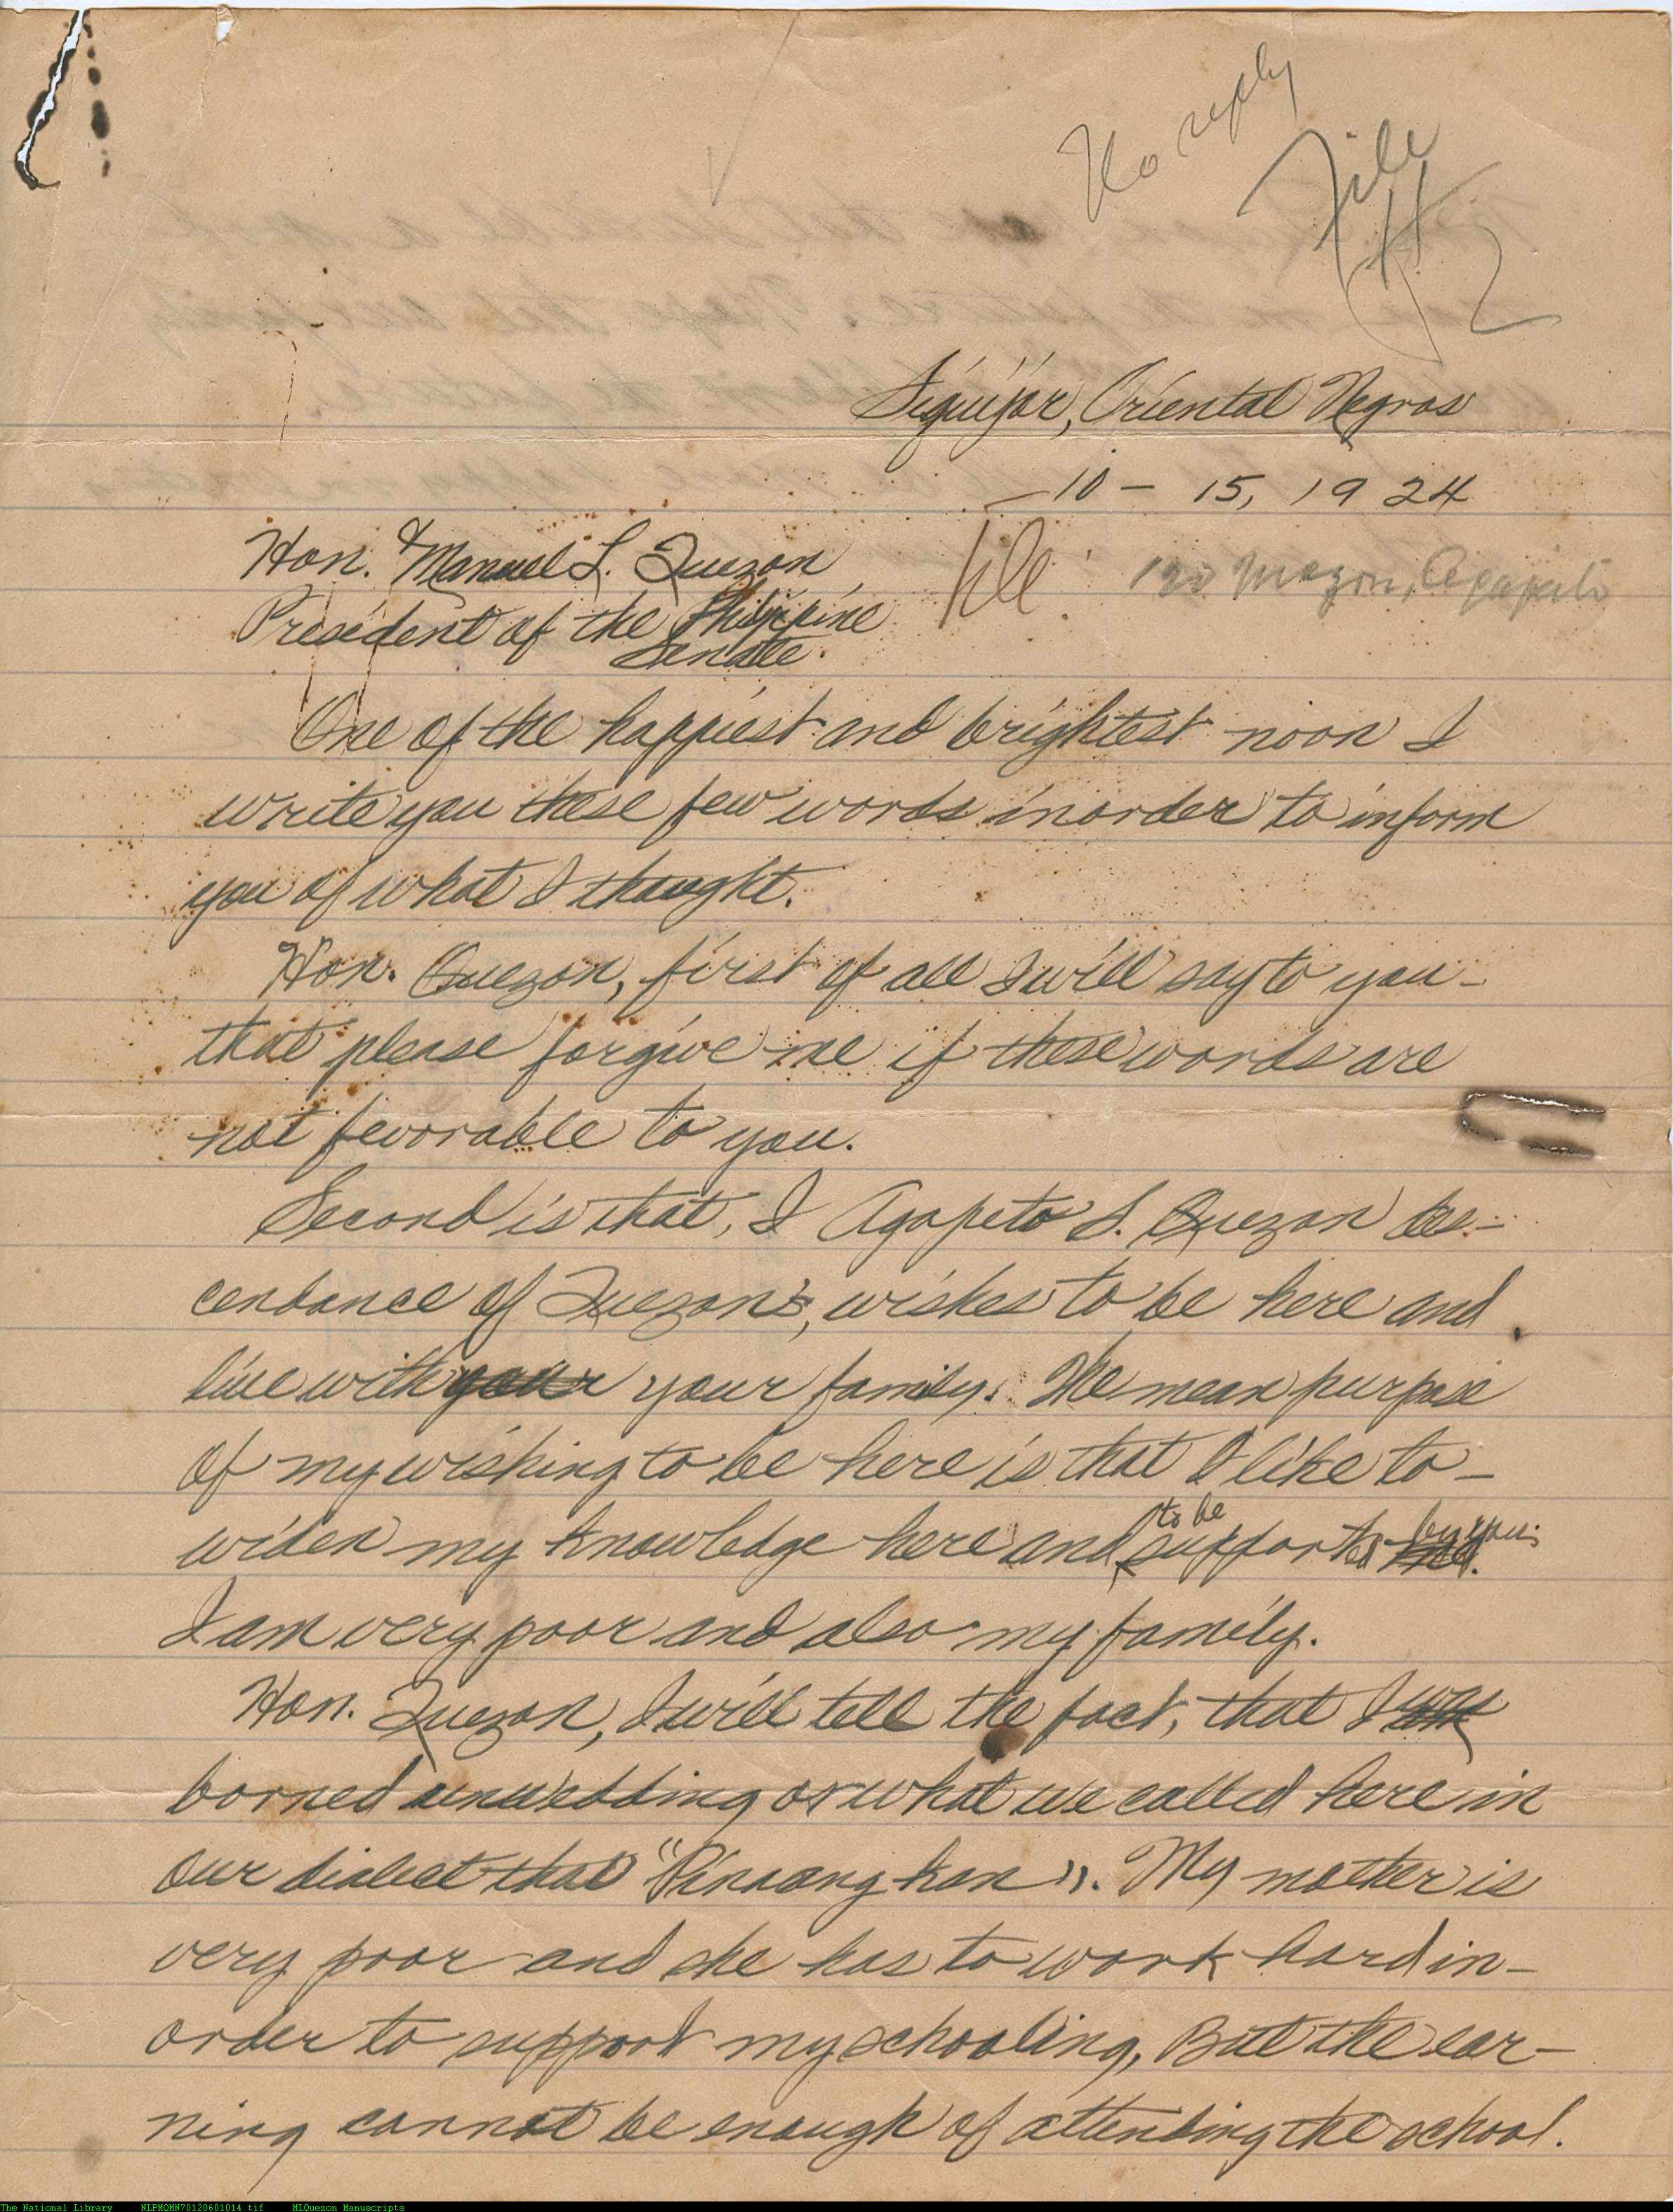 No reply
File
Siquijor, Oriental Negros
10 - 15, 1924
Hon. Manuel L. Quezon
File
President of the Philippine
Senate.
One of the happiest and brightest noon I
write you these few words inorder to inform
you of what I thought.
Hon. Quezon, first of all I will say to you -
that please forgive me if these words are
not fevorable to you.
Second is that, I Agapeto S. Quezon des-
cendance of Quezons, wishes to be here and
live with your your family. The mean purpose
of my wishing to be here is that I like to -
widen my knowledge here and to be supported by you;
I am very poor and also my family.
Hon. Quezon, I will tell the fact, that I was
borned unwedding or what we called here in
our dialect that "Pinaangkan". My mother is
very poor and she has to work hard in-
order to support my schooling, But the ear-
ning cannot be enough of attending the school.
The National Library NLPMQMN70120601014.tif MLQuezon Manuscripts